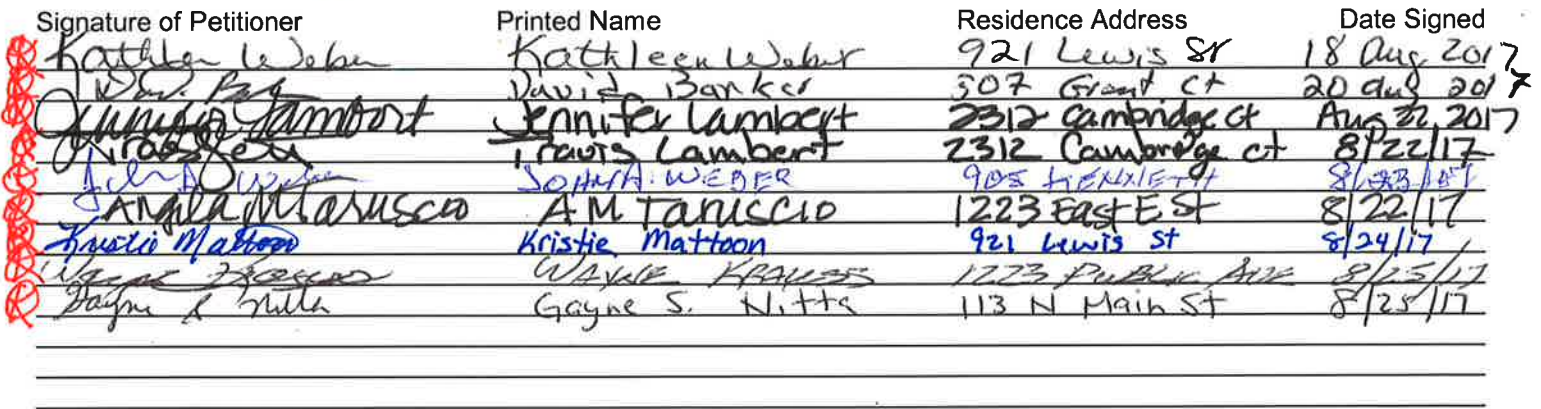 Signature of Petitioner Printed Name Residence Address Date Signed
Kathleen Weber Kathleen Weber 921 Lewis St 18 Aug 2017
David Barker 507 Grant Ct 20 aug 2017
Jennifer Lambert Jennifer Lambert 2312 Cambridge ct Aug 22, 2017
Travis Lambert 2312 Cambridge ct 8/22/17
John A. Weber JOHN A. WEBER 905 8/23/17
Angela M Taruscio A M Taruscio 1223 East E St 8/22/17
Kristie Mattoon Kristie Mattoon 921 Lewis St 8/24/17
Wayne Krauss WAYNE KRAUSS 1223 PUBLIC AVE 8/25/17
Gayne S Nitta Gayne S. Nitta 113 N Main St 8/25/17